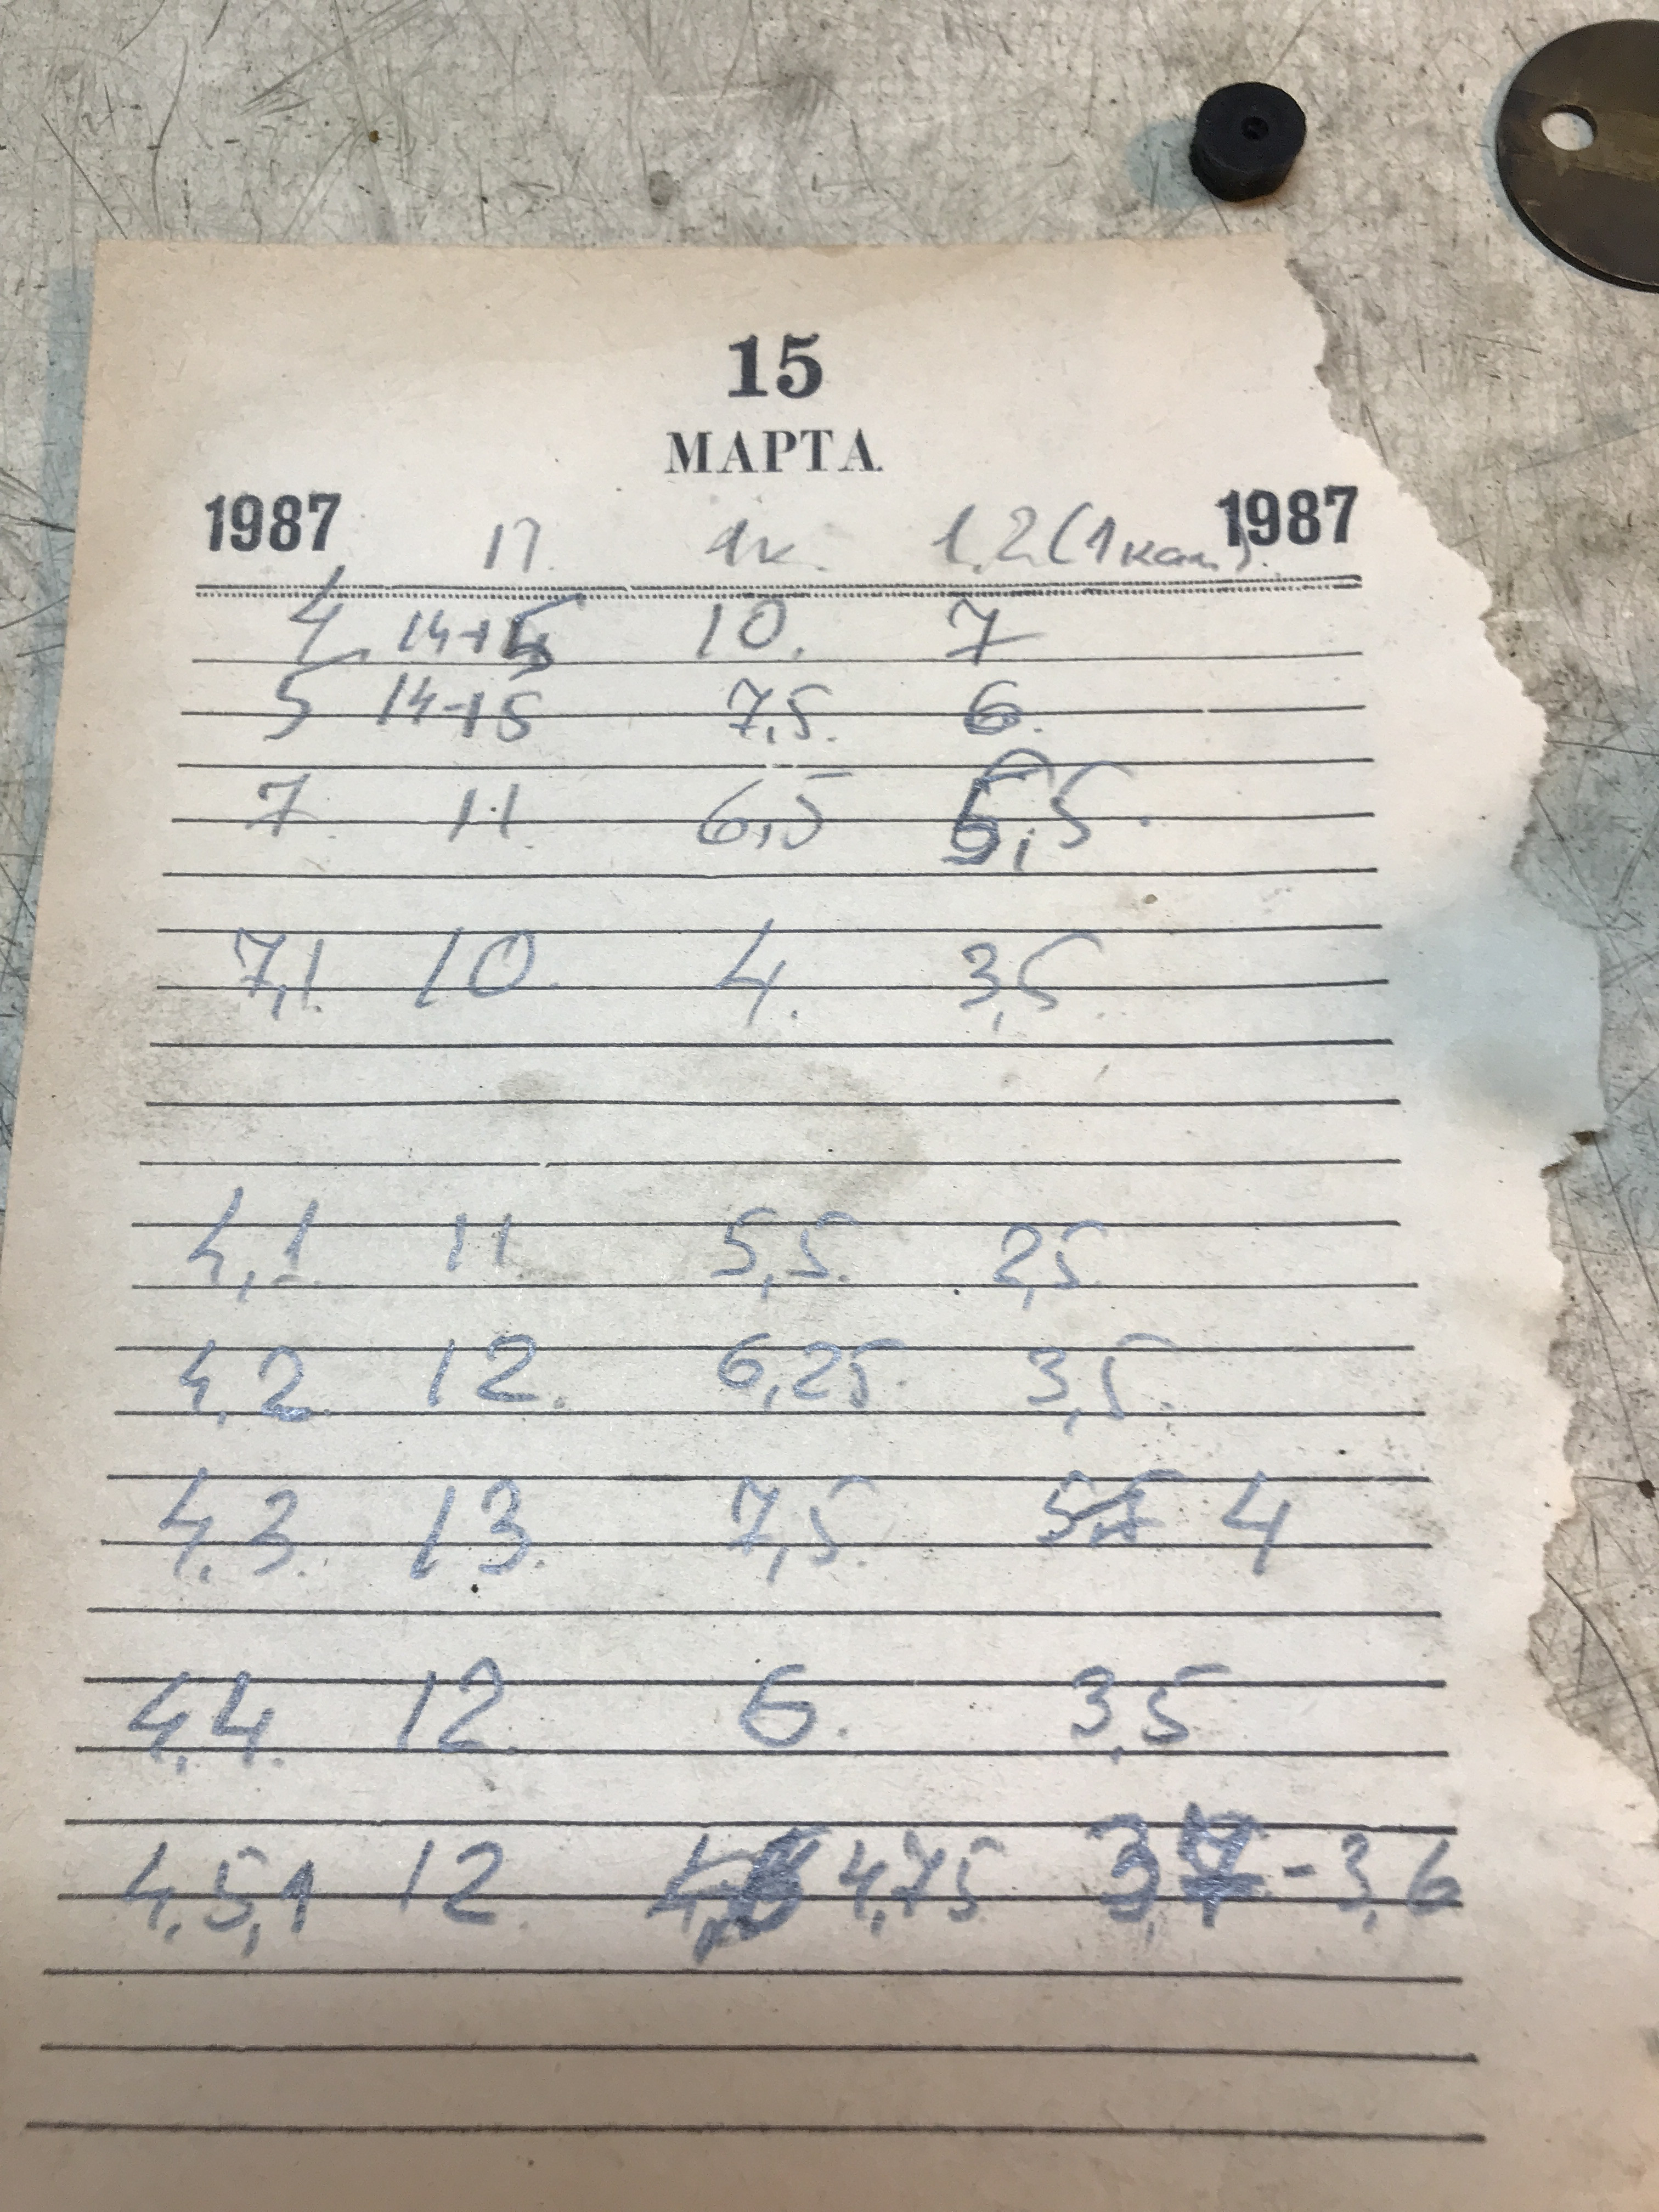 15
МАРТА
1987 П. 1к. 1,2(1кан). 1987
4. 14+5 10. 7
5 14+5 7,5. 6.
7. 11. 6,5 5,5.
7,1. 10. 4. 3,5.
4,1. 11. 5,5. 2,5.
4,2. 12. 6,25. 3,5.
4,3. 13. 7,5. 4
4,4. 12. 6. 3,5
4,5,1 12. 4,75 - 3,6